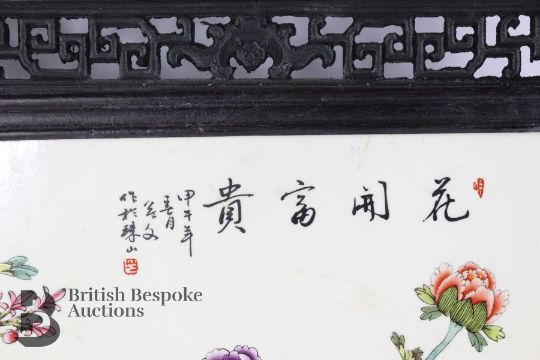 花開富貴
甲午年
春月
作於珠山
British Bespoke
Auctions